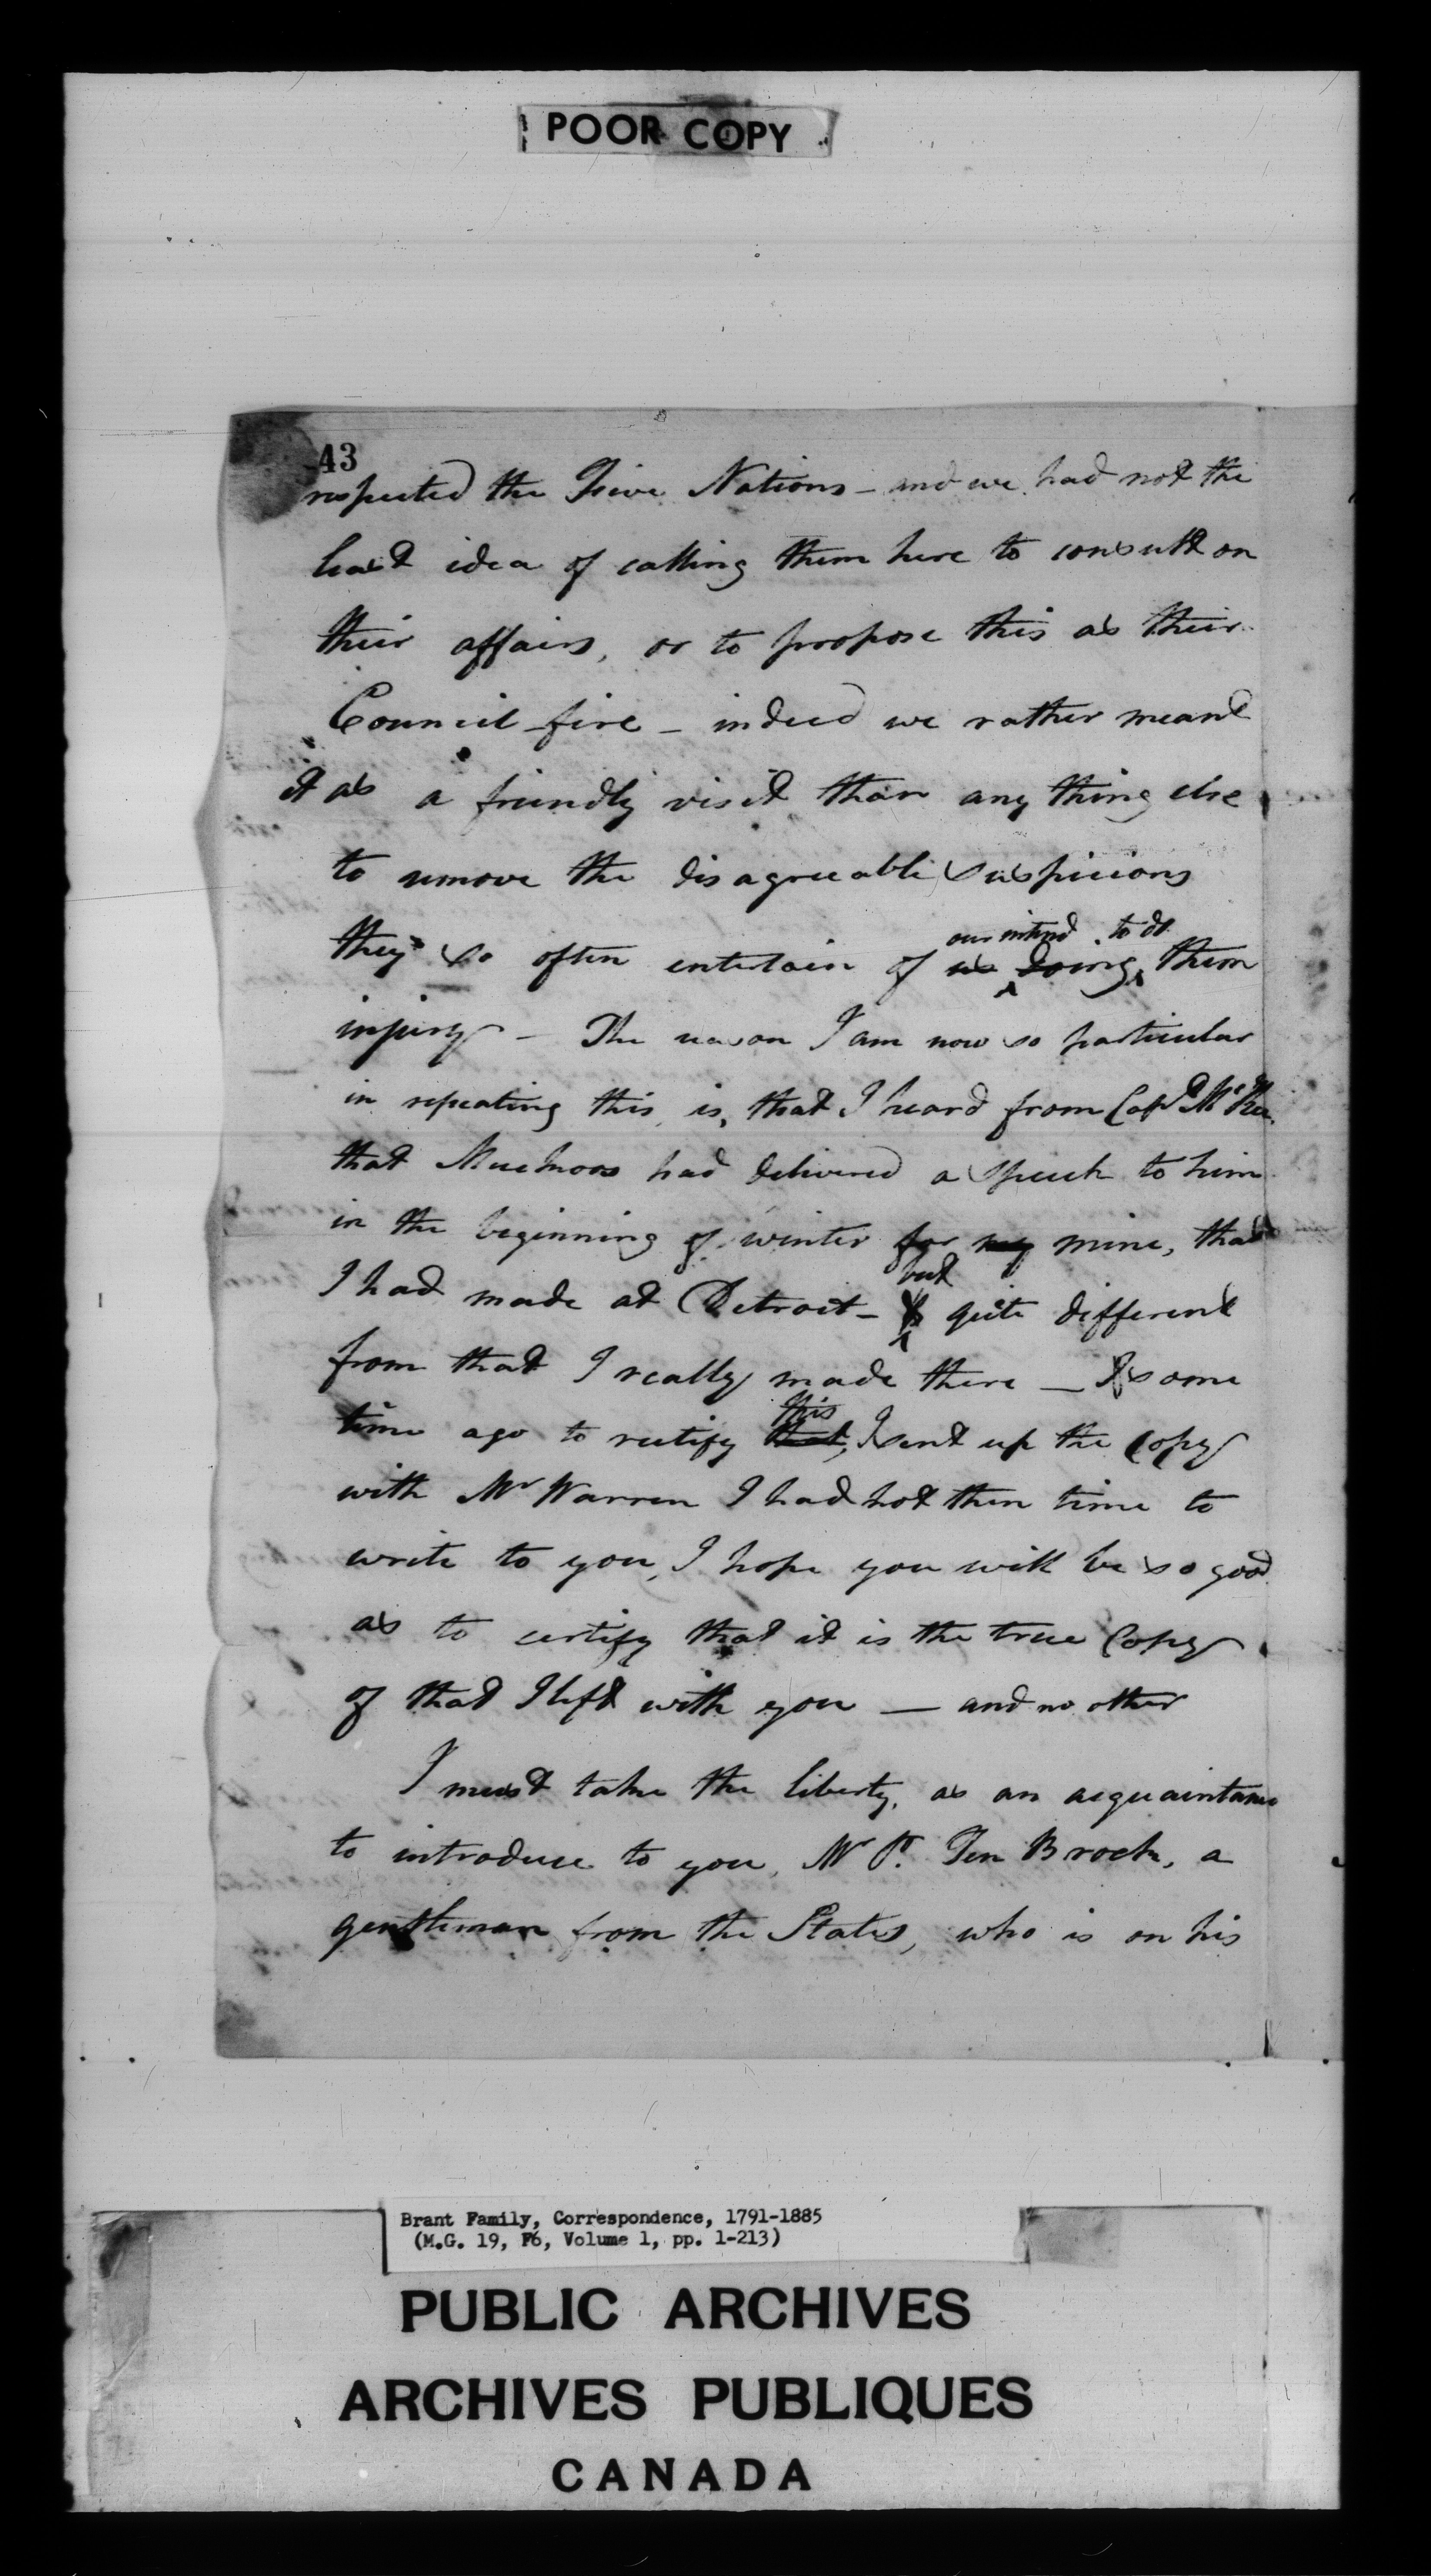 POOR COPY
43
respected the Five Nations - and we had not the
least idea of calling them here to consult on
their affairs, or to propose this as their
Council fire - indeed we rather meant
it as a friendly visit than any thing else
to remove the disagreeable suspicions
our intend to do
they so often entertain of us doing them
injury - The reason I am now so particular
in repeating this is, that I heard from Capt McKee
that had delivered a speech to him
in the beginning of winter for my mine, that
but
I had made at Detroit - quite different
from that I really made there - some
this
time ago to rectify that, I sent up the Copy
with Mr Warren I had not then time to
write to you, I hope you will be so good
as to certify that it is the true Copy
of that I left with you - and no other
I must take the liberty, as an acquaintance
to introduce to you, Mr P. Ten Broek, a
gentleman from the States, who is on his
Brant Family, Correspondence, 1791-1885
(M.G. 19, F6, Volume 1, pp. 1-213)
PUBLIC ARCHIVES
ARCHIVES PUBLIQUES
CANADA